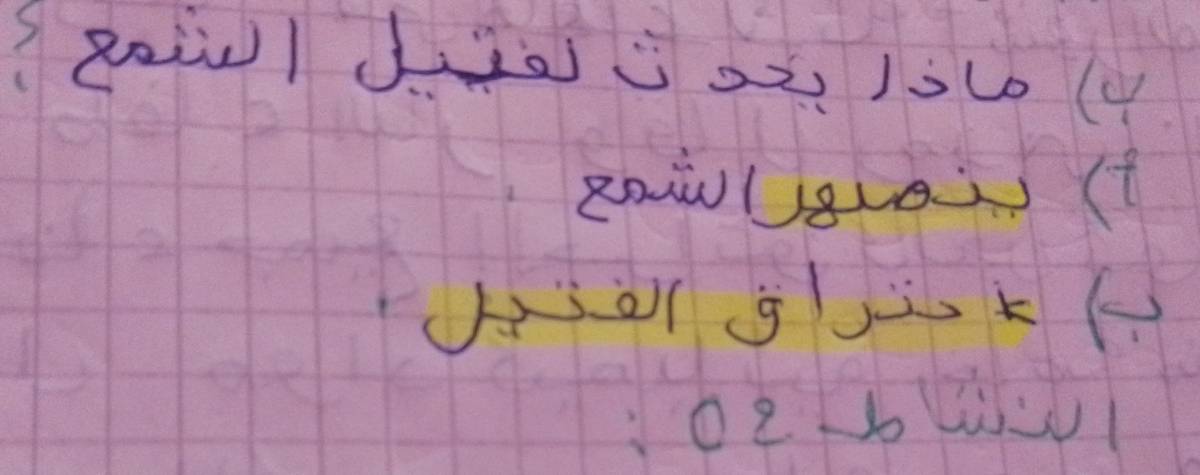 ب) ماذا يحدث لفتيل الشمع ؟
أ) ينصهر الشمع .
ب) احتراق الفتيل .
النشاط 02 :